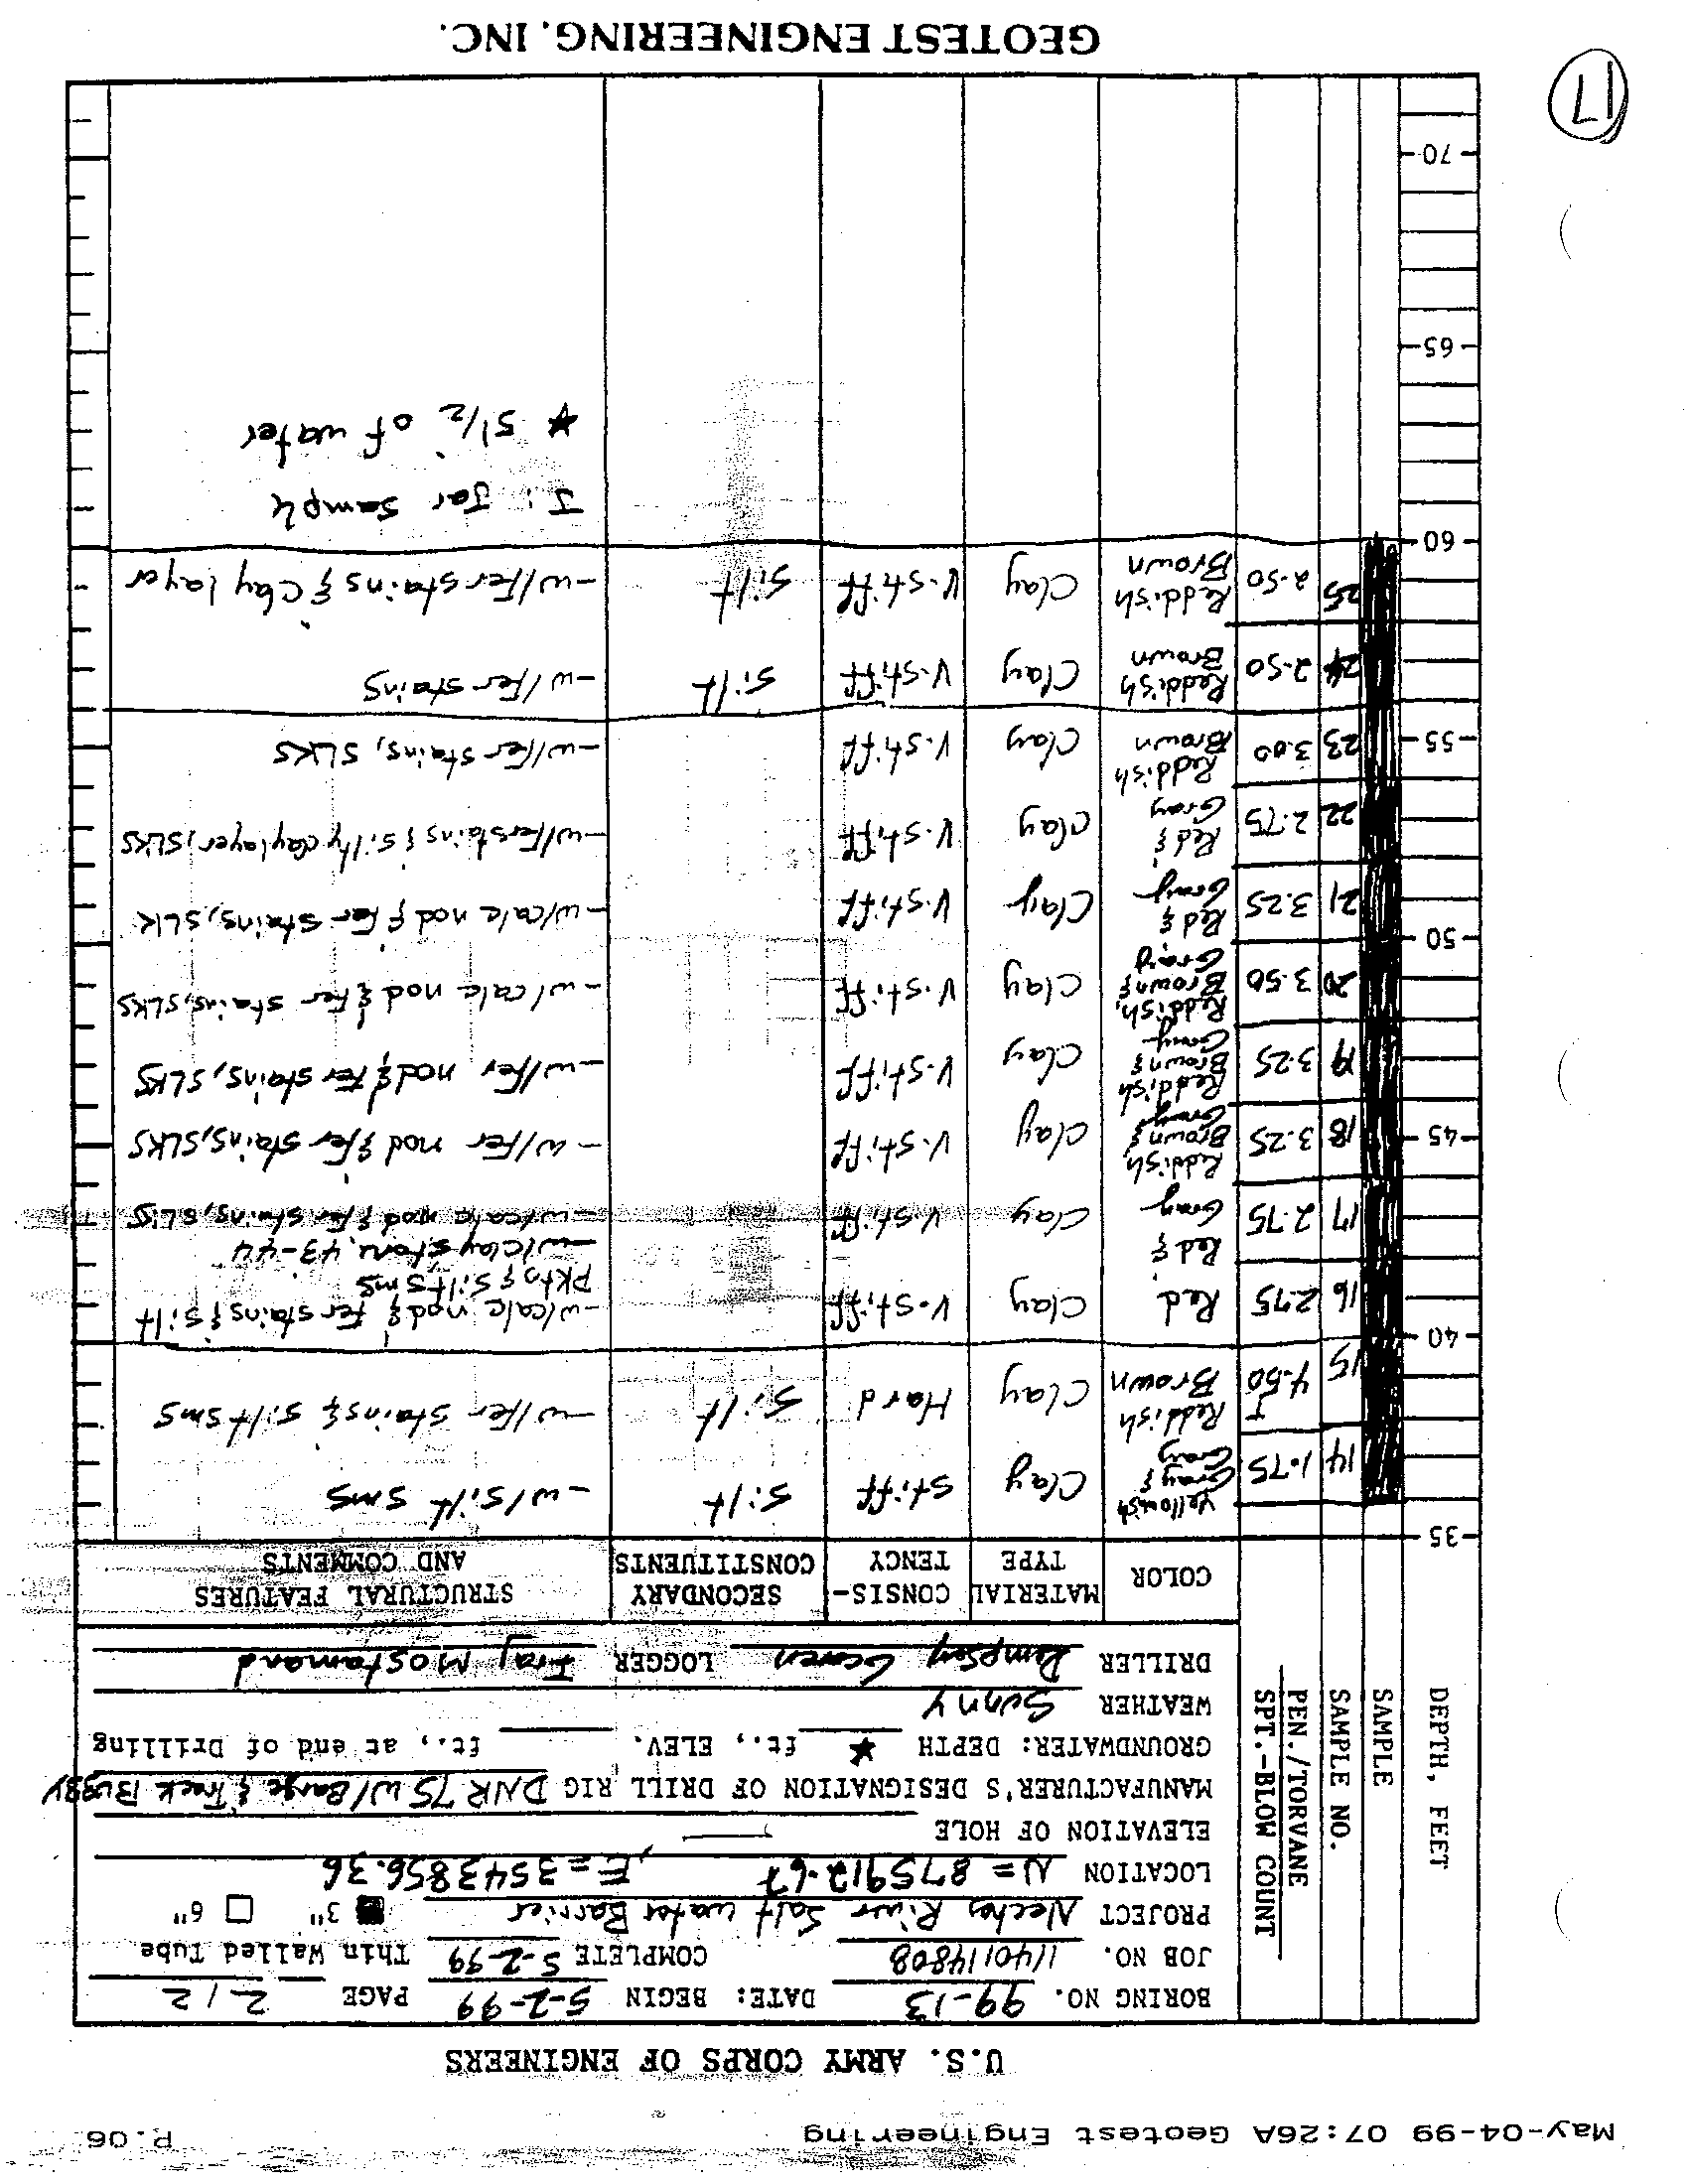 May-04-99 07:26A Geotest Engineering P.06
U.S. ARMY CORPS OF ENGINEERS
BORING NO. 99-13 DATE: BEGIN 5-2-99 PAGE 2/2
JOB NO. 1140114808 COMPLETE 5-2-99 Thin Walled Tube
PROJECT Neches River Salt water Barrier 3" 6"
LOCATION N = 875912.67, E = 3543856.36
ELEVATION OF HOLE —
MANUFACTURER'S DESIGNATION OF DRILL RIG DNR 75 W/Barge & Track Buggy
GROUNDWATER: DEPTH ★ ft., ELEV. ft., at end of Drilling
WEATHER Sunny
DRILLER LOGGER Mostamand
DEPTH, FEET
SAMPLE
SAMPLE NO.
PEN./TORVANE
SPT.-BLOW COUNT
COLOR
MATERIAL TYPE
CONSIS-TENCY
SECONDARY CONSTITUENTS
STRUCTURAL FEATURES AND COMMENTS
35
14 1.75 Yellowish Gray & Gray Clay Stiff Silt -w/silt sms
15 4.50 J Reddish Brown Clay Hard Silt -w/fer stains & silt sms
40
16 2.75 Red Clay V.stiff -w/calc nod & fer stains & silt
pkts & silt sms
-w/clay stone, 43-44
17 2.75 Red & Gray Clay V.stiff -w/calc nod & fer stains, SLKS
45
18 3.25 Reddish Brown & Gray Clay V.stiff -w/fer nod & fer stains, SLKS
19 3.25 Reddish Brown & Gray Clay V.stiff -w/fer nod & fer stains, SLKS
20 3.50 Reddish Brown & Gray Clay V.stiff -w/calc nod & fer stains, SLKS
50
21 3.25 Red & Gray Clay V.stiff -w/calc nod & fer stains, SLK
22 2.75 Red & Gray Clay V.stiff -w/fer stains & silty clay layer, SLKS
55
23 3.00 Reddish Brown Clay V.stiff -w/fer stains, SLKS
24 2.50 Reddish Brown Clay V.stiff Silt -w/fer stains
25 2.50 Reddish Brown Clay V.stiff Silt -w/fer stains & clay layer
60
J: Jar sample
★ 5 1/2' of water
65
70
17
GEOTEST ENGINEERING, INC.